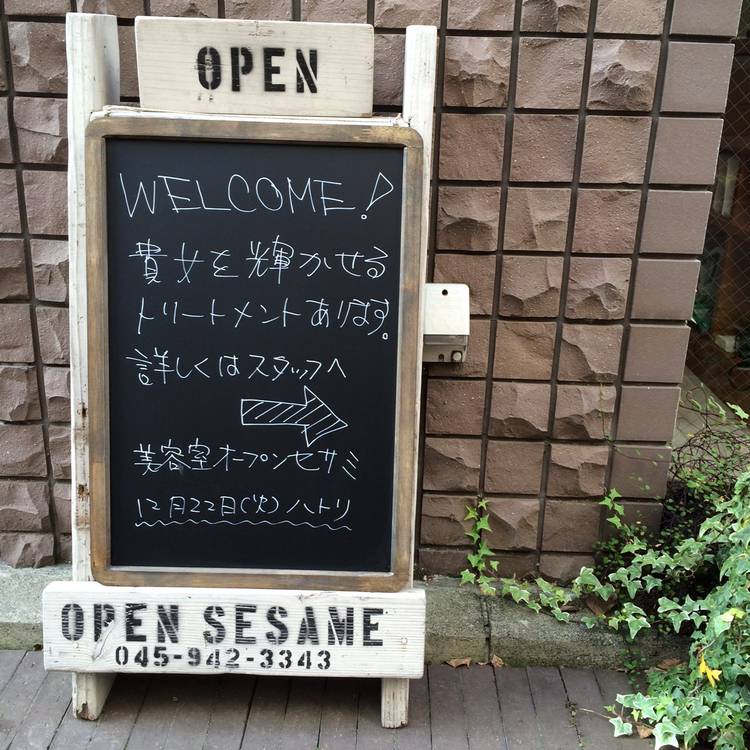 OPEN
WELCOME!
貴女を輝かせる
トリートメントあります。
詳しくはスタッフへ
美容室オープンセサミ
12月22日(火)ハトリ
OPEN SESAME
045-942-3343